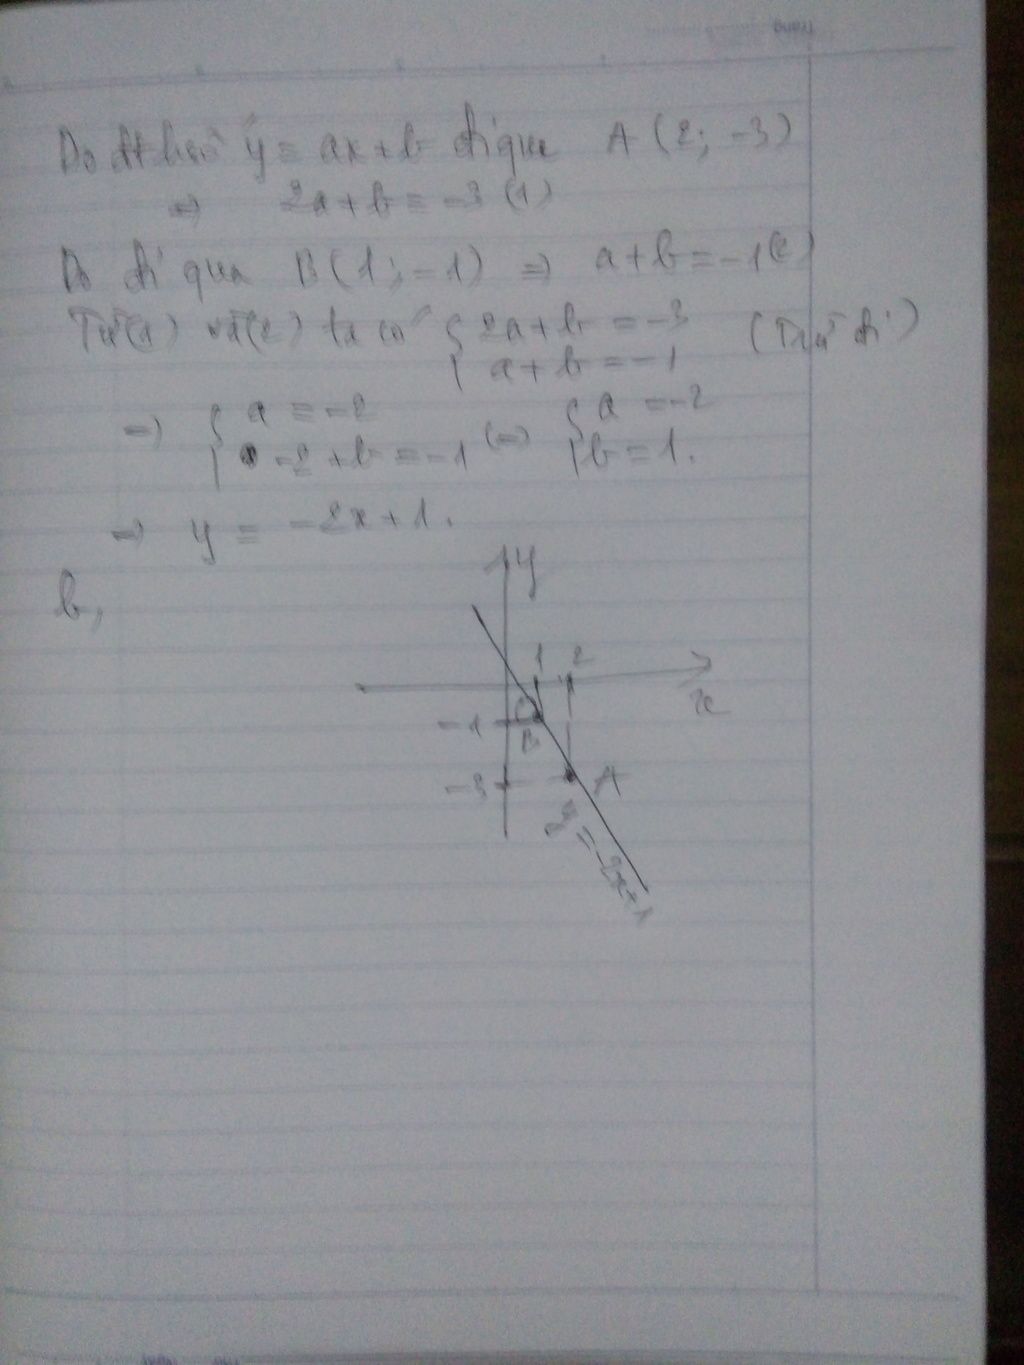 Do đt hsố y = ax + b đi qua A (2; -3)
=> 2a + b = -3 (1)
Do đi qua B (1; -1) => a + b = -1 (2)
Từ (1) và (2) ta có { 2a + b = -3 (Trừ đi)
a + b = -1
=> { a = -2 <=> { a = -2
-2 + b = -1 b = 1.
=> y = -2x + 1.
b,
y
1 2
x
-1
B
-3 A
y = -2x + 1